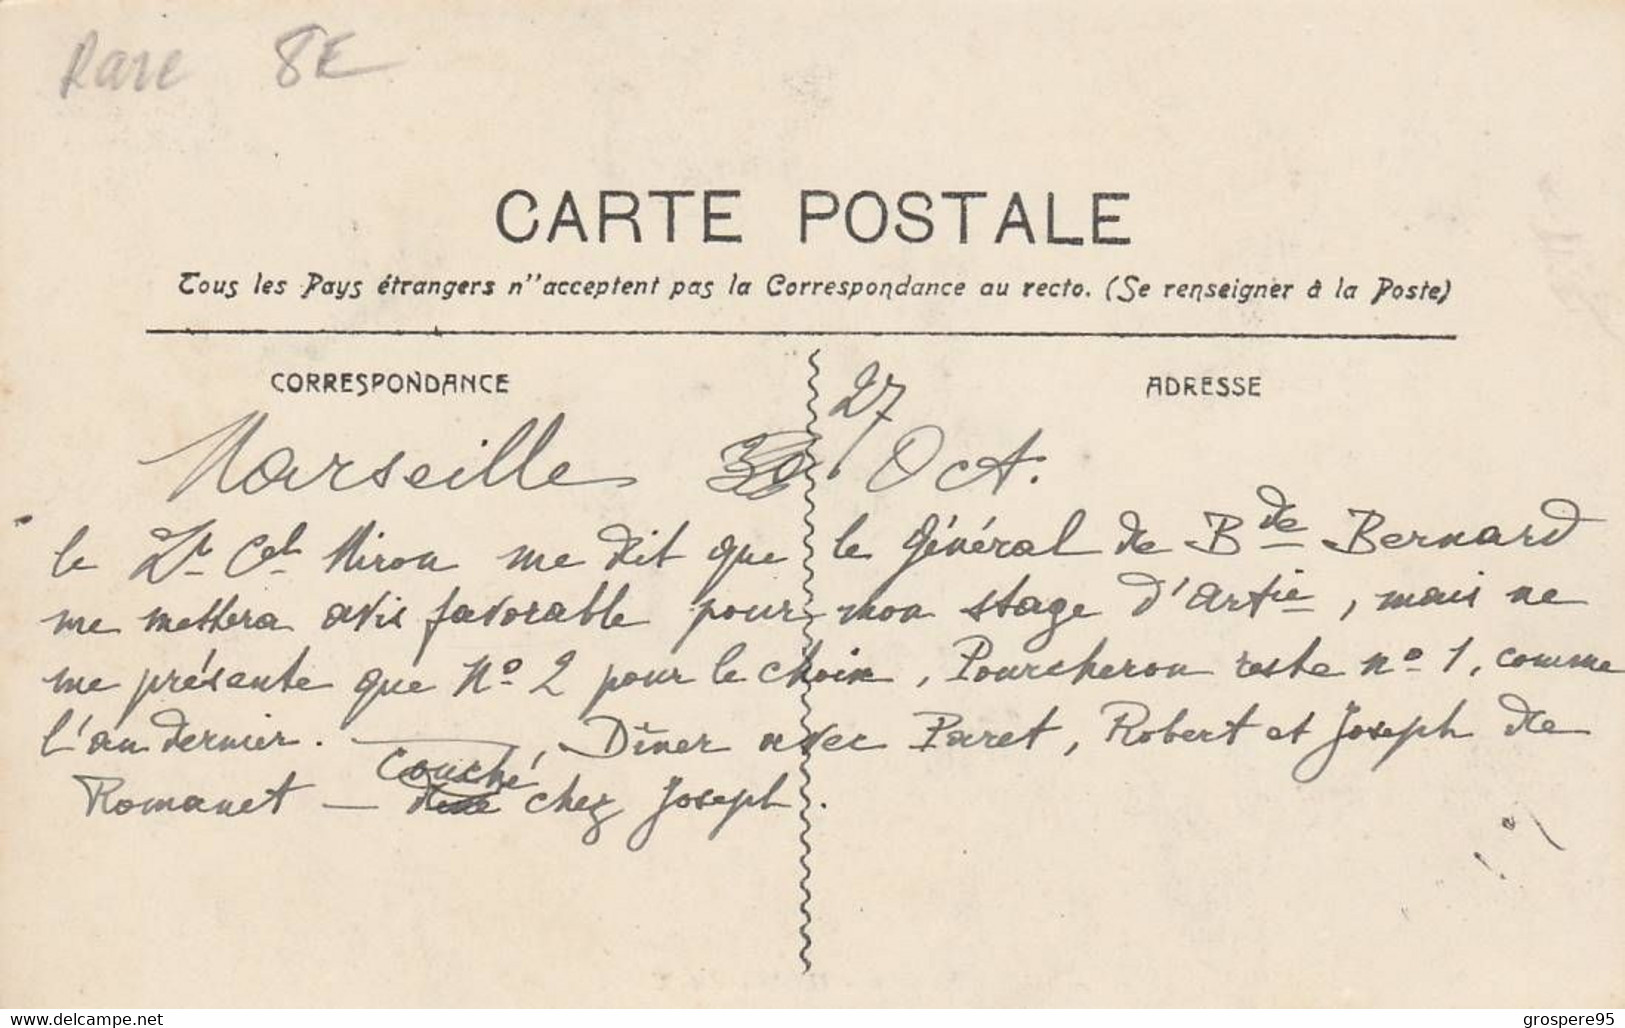 Rare 8E
CARTE POSTALE
Tous les Pays étrangers n''acceptent pas la Correspondance au recto. (Se renseigner à la Poste)
CORRESPONDANCE
ADRESSE
Marseille 30 27 Oct.
le Lt Cel Miron me dit que le Général de Bde Bernard
me mettera avis favorable pour mon stage d'Artie, mais ne
me présente que No 2 pour le choix, Pourcheron reste no 1, comme
l'an dernier. — , Dîner avec Paret, Robert et Joseph de
Romanet — Couché chez Joseph.
delcampe.net
grospere95